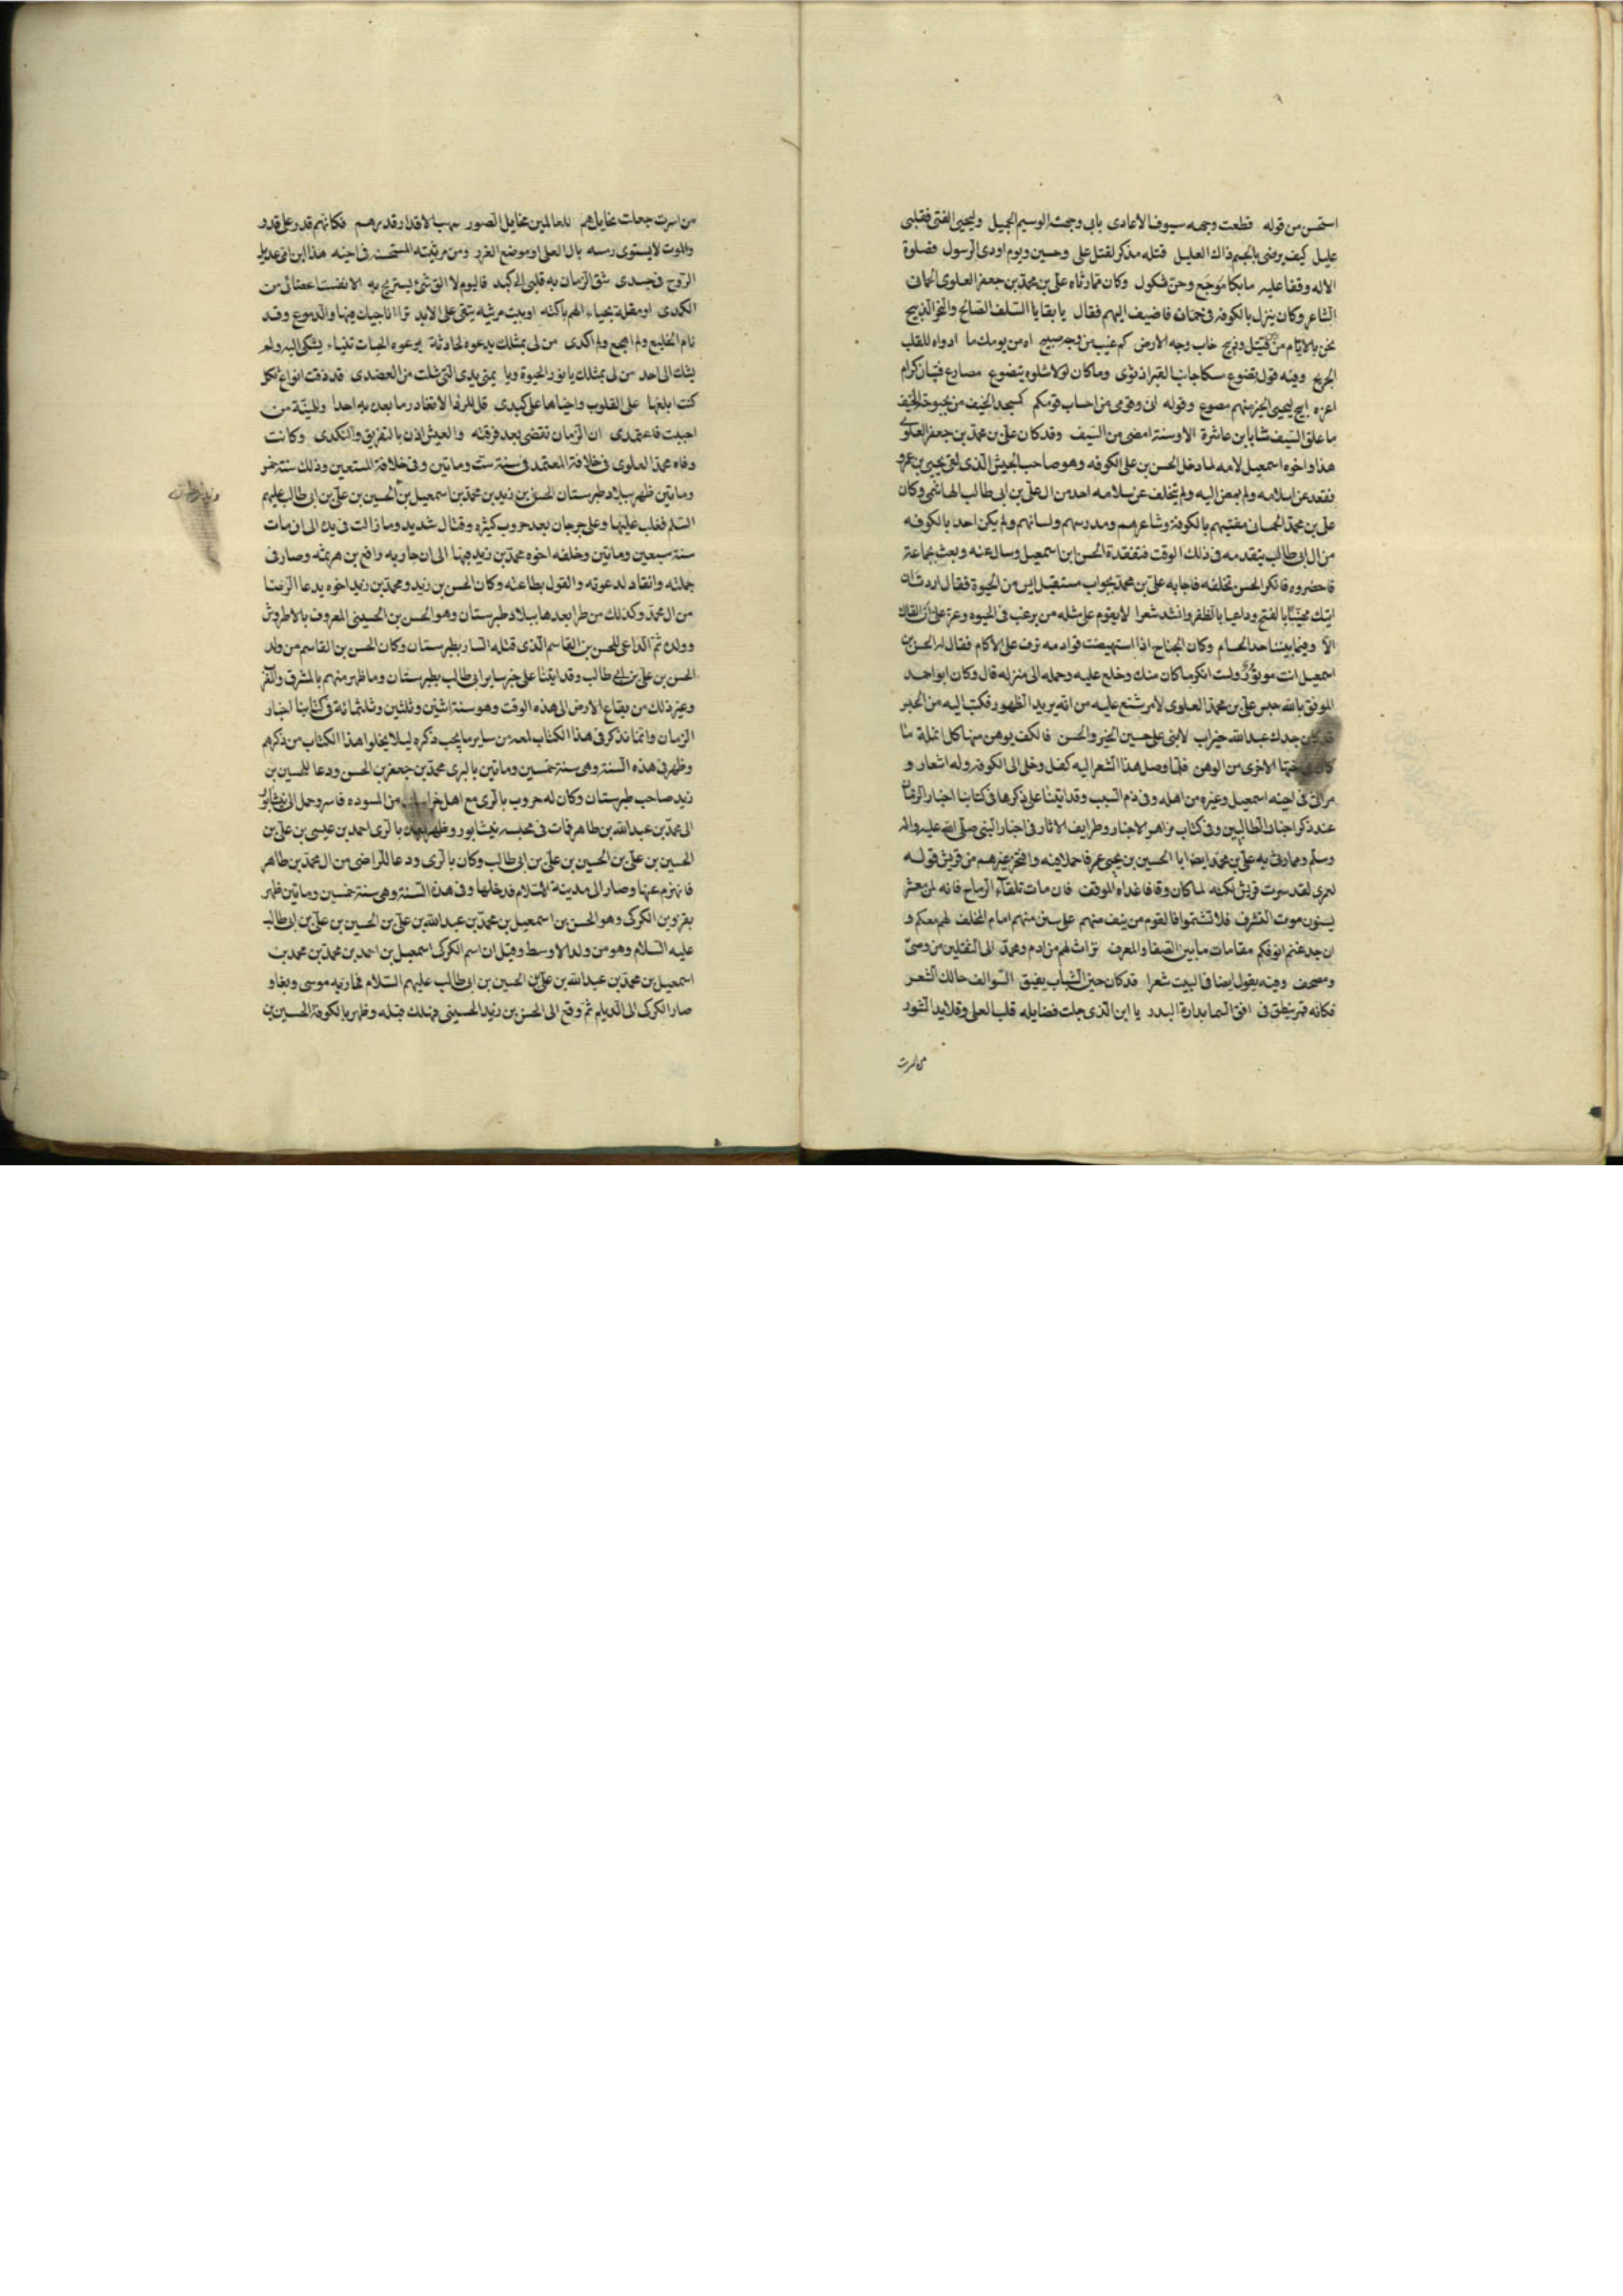 استحسن من قوله قطعت وجهه سيوف الاعادى بابى وجهه الوسيم الجميل وليحيى الفتى فقلبى
عليل كيف يرضى بالجسم ذاك العليل قتله مذكر لقتل على وحسين ويوم اودى الرسول فصلوة
الاله وقفا عليه ما بكا موجع وحن شكول وكان ممن رثاه على بن محمد بن جعفر العلوى الحمانى
الشاعر وكان ينزل بالكوفة فى حمان فاضيف اليهم فقال يا بقايا السلف الصالح والبحر الربيح
نحن بالايام من قتيل وجريح خاب وجه الارض كم غيب من وجه صبيح اه من يومك ما ادواه للقلب
الجريح وفيه قول تضوع مسكا جانب القبر اذ ثوى وما كان لولا شلوه يتضوع مصارع فتيان كرام
اعزه ابيح ليحيى الخير منهم مصرع وقوله انى وقومى من احساب قومكم كمسجد الخيف من بحبوحة الخيف
ما علق السيف منا بابن عاشرة الا وسنة امضى من السيف وقد كان على بن محمد بن جعفر العلوى
هذا واخوه اسمعيل لامه لما دخل الحسن بن على الكوفه وهو صاحب الجيش الذى لقى يحيى بن عمر
فقعد عن سلامه ولم يمض اليه ولم يتخلف عن سلامه احد من ال على بن ابى طالب الهاشمى وكان
على بن محمد الحمانى مفتيهم بالكوفة وشاعرهم ومدرسهم ولسانهم ولم يكن احدا بالكوفه
من ال ابى طالب يتقدمه فى ذلك الوقت فتفقدة الحسن ابن اسمعيل وسال عنه وبعث بجماعة
فاحضروه فانكر الحسن تخلفه فاجابه على بن محمد بجواب مستقبل ايس من الحيوة فقال اردت ان
اتيك مهنئا بالفتح وداعيا بالظفر وانشد شعرا لا يقوم على مثله من يرغب فى الحيوه وعز على ان القاك
الا وفيما بيننا حد الحسام وكان الجناح اذا استهيضت قوادمه ترف على الاكام فقال له الحسن بن
اسمعيل انت موتور ولست انكر ما كان منك وخلع عليه وحمله الى منزله قال وكان ابو احمد
الموفق بالله حبس على بن محمد العلوى لامر شنع عليه من انه يريد الظهور فكتب اليه من الحبس
قد كان جدك عبد الله خير اب لابنى على حسين الخير والحسن فالكف يوهن منها كل انملة ما
كان من اختها الاخرى من الوهن فلما وصل هذا الشعر اليه كفل وخلى الى الكوفه وله اشعار و
مراثى فى اخيه اسمعيل وغيره من اهله وفى ذم الشيب وقد اتينا على ذكرها فى كتابنا اخبار الزمان
عند ذكر اخبار الطالبيين وفى كتاب مزاهر الاخبار وطرايف الاثار فى اخبار النبى صلى الله عليه واله
وسلم ومما رثى به على بن محمد ايضا ابا الحسين بن يحيى عمر فاحملا فيه وافتخر غيرهم من قريش قوله
لعمرى لقد سرت قريش بهلكه لما كان وقافا غداه الموقف فان مات تلقآء الرماح فانه لمن معشر
يسنون موت التشرف فلا تشمتوا فالقوم من يبق منهم على سنن منهم امام المخلف لهم معكم و
ان جدعتم انوفكم مقامات ما بين الصفا والمعرف تراث لهم من ادم ومحمد الى الثقلين من وصى
ومصحف وفيه يقول ايضا فى البيت شعرا قد كان حين الشباب يفيق السوالف حالك الشعر
فكانه قمر ينطق فى افق السما بدارة البدر يا ابن الذى جلت فضايله قلب العلى وقلايد الشود
من اسرت
من اسرت جعلت مخايلهم للعالمين مخايل الصور سببا لاقدار قدرهم فكانهم قدر على قدر
والموت لا يستوى رسمه بال العلى او موضع الغرر ومن مرثيته المستحسنه فى اخيه هذا ابن امى عديل
الروح فى جسدى شق الزمان به قلبى الى كبد فاليوم لا الق شئ يستريح به الا تفتت اعضائى من
الكمدى او مقلة بحياء الهم باكيه او بيت مرثيه تبقى على الابد ترا اناجيك فيها والدموع وقد
نام الخليع ولم اهجع ولم اكدى من لى بمثلك يدعوه لحادثة
يشك الى احد من لى بمثلك يا نور الحيوة ويا يمنى يدى التى شلت من العضدى قد ذقت انواع ثكل
كنت ابلغها على القلوب واخباها على كبدى قل للردا لا تغادر ما بعده احدا وللمنية من
احببت فاعتمدى ان الزمان تقضى بعد فرقته والعيش اذن بالتفريق والنكدى وكانت
وفاه محمد العلوى فى خلافة المعتمد فى سنة ست وماتين وفى خلافة المستعين وذلك سنة خمس
وماتين ظهر ببلاد طبرستان الحسن بن زيد بن محمد بن اسمعيل بن الحسين بن على بن ابى طالب عليهم
السلم فغلب عليها وعلى جرجان بعد حروب كثيره وقتال شديد وما زالت فى يده الى ان مات
سنة سبعين وماتين وخلفه اخوه محمد بن زيد فيها الى ان حاربه رافع بن هرثمه وصار فى
جملته وانقاد لدعوته والقول بطاعته وكان الحسن بن زيد ومحمد بن زيد اخوه يدعا الرضا
من ال محمد وكذلك من طرا بعدها ببلاد طبرستان وهو الحسن بن الحسينى المعروف بالاطروش
وولده ثم الداعى للحسن بن القاسم الذى قتله السار بطبرستان وكان الحسن بن القاسم من ولد
الحسن بن على بن ابى طالب وقد اتينا على خبر ساير ابى طالب بطبرستان وما ظهر منهم بالمشرق والغر
وغير ذلك من بقاع الارض الى هذه الوقت وهو سنة اثنين وثلثين وثلثمائة فى كتابنا اخبار
الزمان وانما نذكر فى هذا الكتاب لمعه من ساير ما يجب ذكره ليلا يخلوا هذا الكتاب من ذكرهم
وظهر فى هذه السنة وهى سنة خمسين وماتين بالرى محمد بن جعفر بن الحسن ودعا للحسين بن
زيد صاحب طبرستان وكان له حروب بالرى مع اهل خراسان من المسوده فاسر وحمل الى نيشابور
الى محمد بن عبد الله بن طاهر فات فى محبسه نيشابور وظهر بعده بالرى احمد بن عيسى بن على بن
الحسين بن على بن الحسين بن على بن ابى طالب وكان بالرى ودعا للراضى من ال محمد بن طاهر
فانهزم عنها وصار الى مدينة السلام فدخلها وفى هذه السنة وهى سنة خمسين وماتين ظهر
بقزوين الكركى وهو الحسن بن اسمعيل بن محمد بن عبد الله بن على بن الحسين بن على بن ابى طالب
عليه السلام وهو من ولد الاوسط وقيل ان اسم الكركى اسمعيل بن احمد بن محمد بن محمد بن
اسمعيل بن محمد بن عبد الله بن على بن الحسين بن ابى طالب عليهم السلام فحاربه موسى وبغا و
صار الكركى الى الديلم ثم وقع الى الحسن بن زيد الحسينى فهلك قبله وظهر بالكوفة الحسين بن